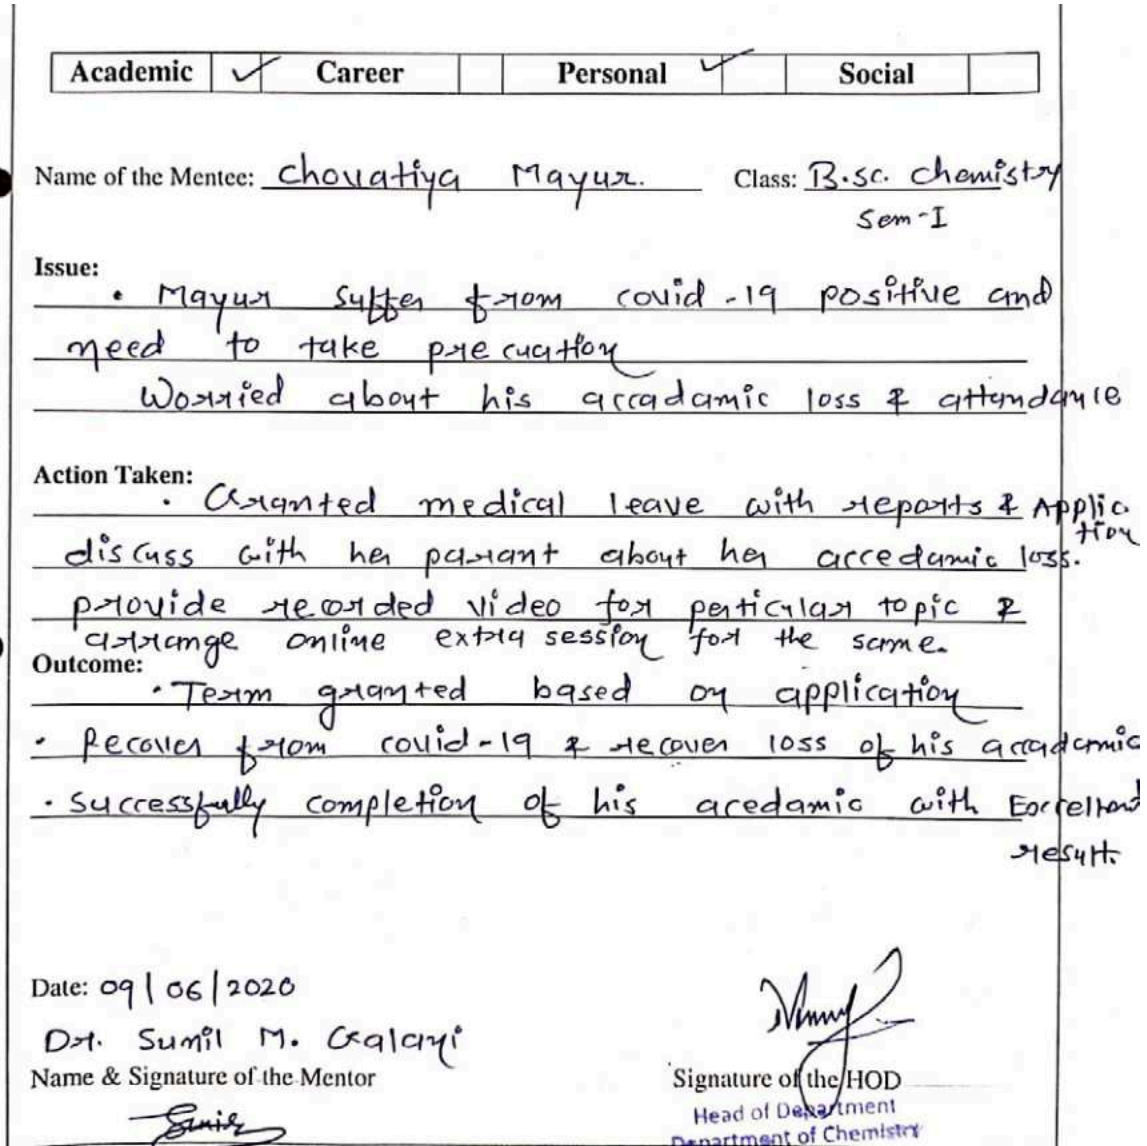 Academic ✓ Career Personal ✓ Social
Name of the Mentee: Chovatiya Mayur. Class: B.sc. chemistry
Sem-I
Issue:
• Mayur suffer from covid-19 positive and
need to take precuation
Worried about his accadamic loss & attendance
Action Taken:
• Granted medical leave with reports & Applic
tion
discuss with her parant about her accedamic loss.
provide recorded video for perticular topic &
arrange online extra session for the same.
Outcome:
• Term granted based on application
• Recover from covid-19 & recover loss of his accademic
• successfully completion of his acedamic with Excellent
result.
Date: 09/06/2020
Dr. Sunil M. Galani
Name & Signature of the Mentor
Signature of the HOD
Head of Department
Department of Chemistry